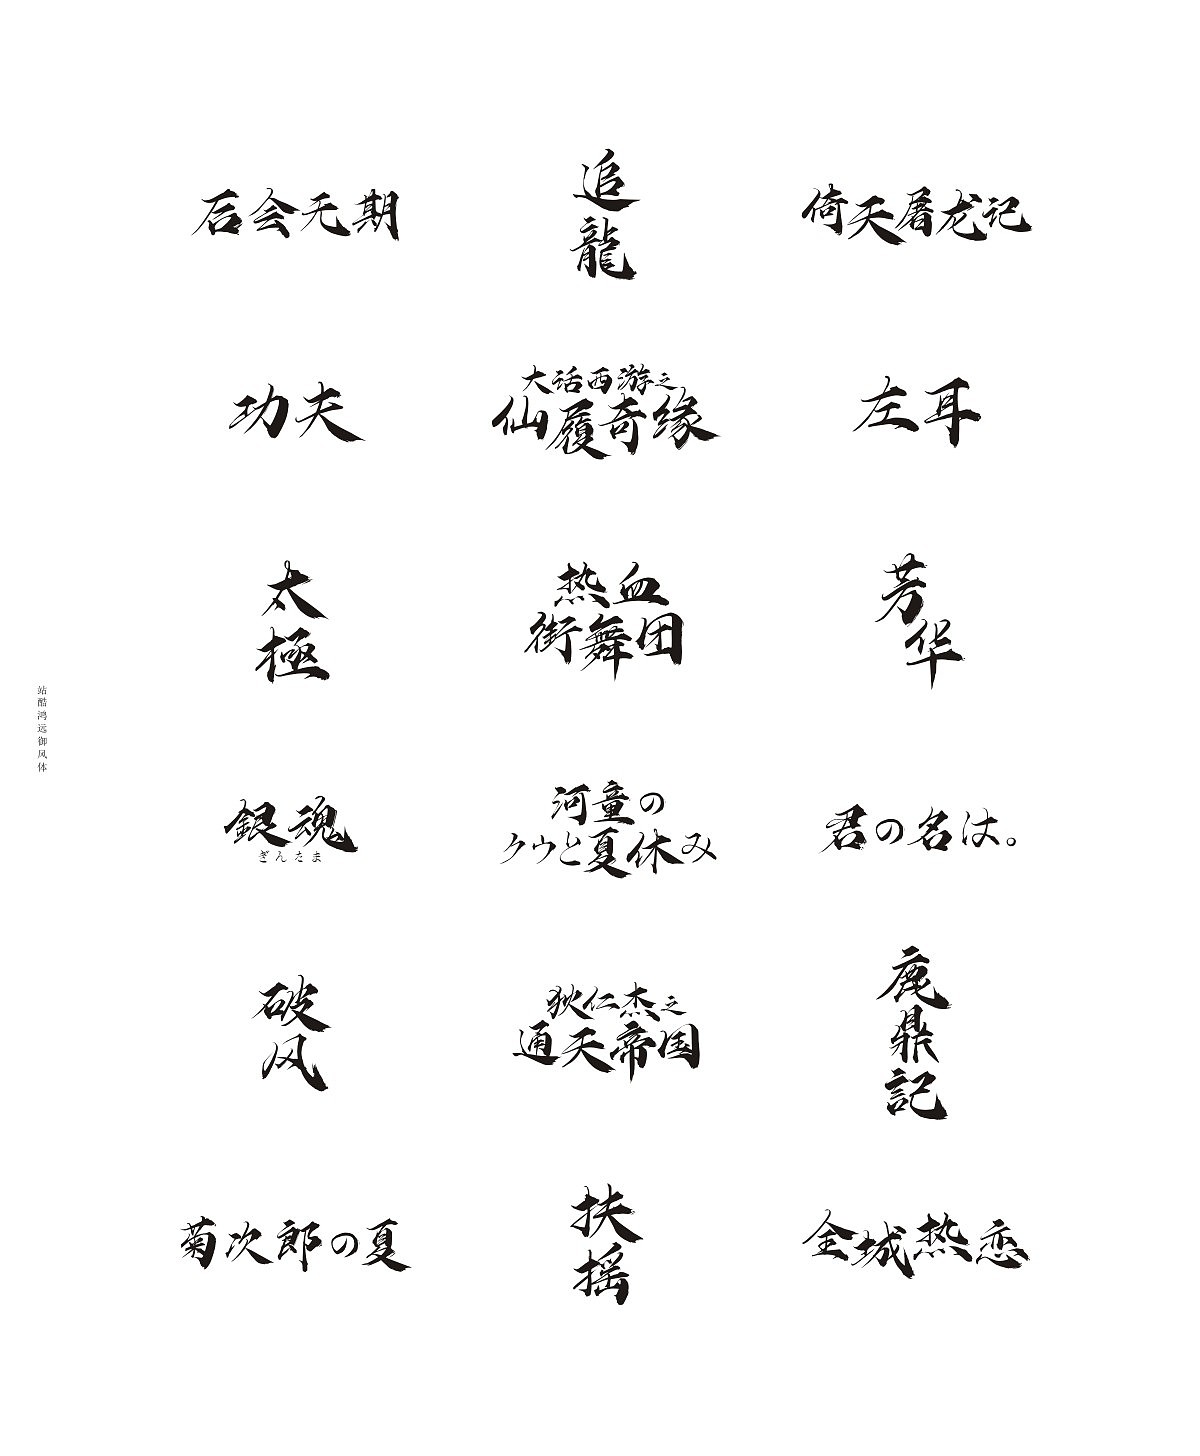 后会无期
追龍
倚天屠龙记
功夫
大话西游之
仙履奇缘
左耳
太極
热血
街舞团
芳华
站酷鸿远御风体
銀魂
ぎんたま
河童の
クゥと夏休み
君の名は。
破风
狄仁杰之
通天帝国
鹿鼎記
菊次郎の夏
扶摇
全城热恋